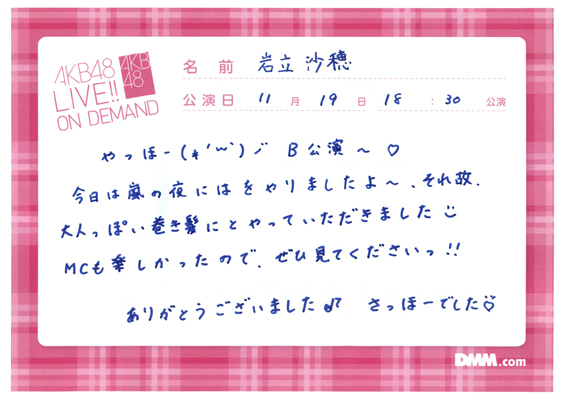 AKB48
LIVE!!
ON DEMAND
AKB
48
名前 岩立 沙穂
公演日 11 月 19 日 18 : 30 公演
やっほー(*'~')ノ B公演〜♡
今日は嵐の夜にはをやりましたよ〜、それ故、
大人っぽい巻き髪にとやっていただきました
MCも楽しかったので、ぜひ見てくださいっ!!
ありがとうございました♪ さっほーでした
DMM.com